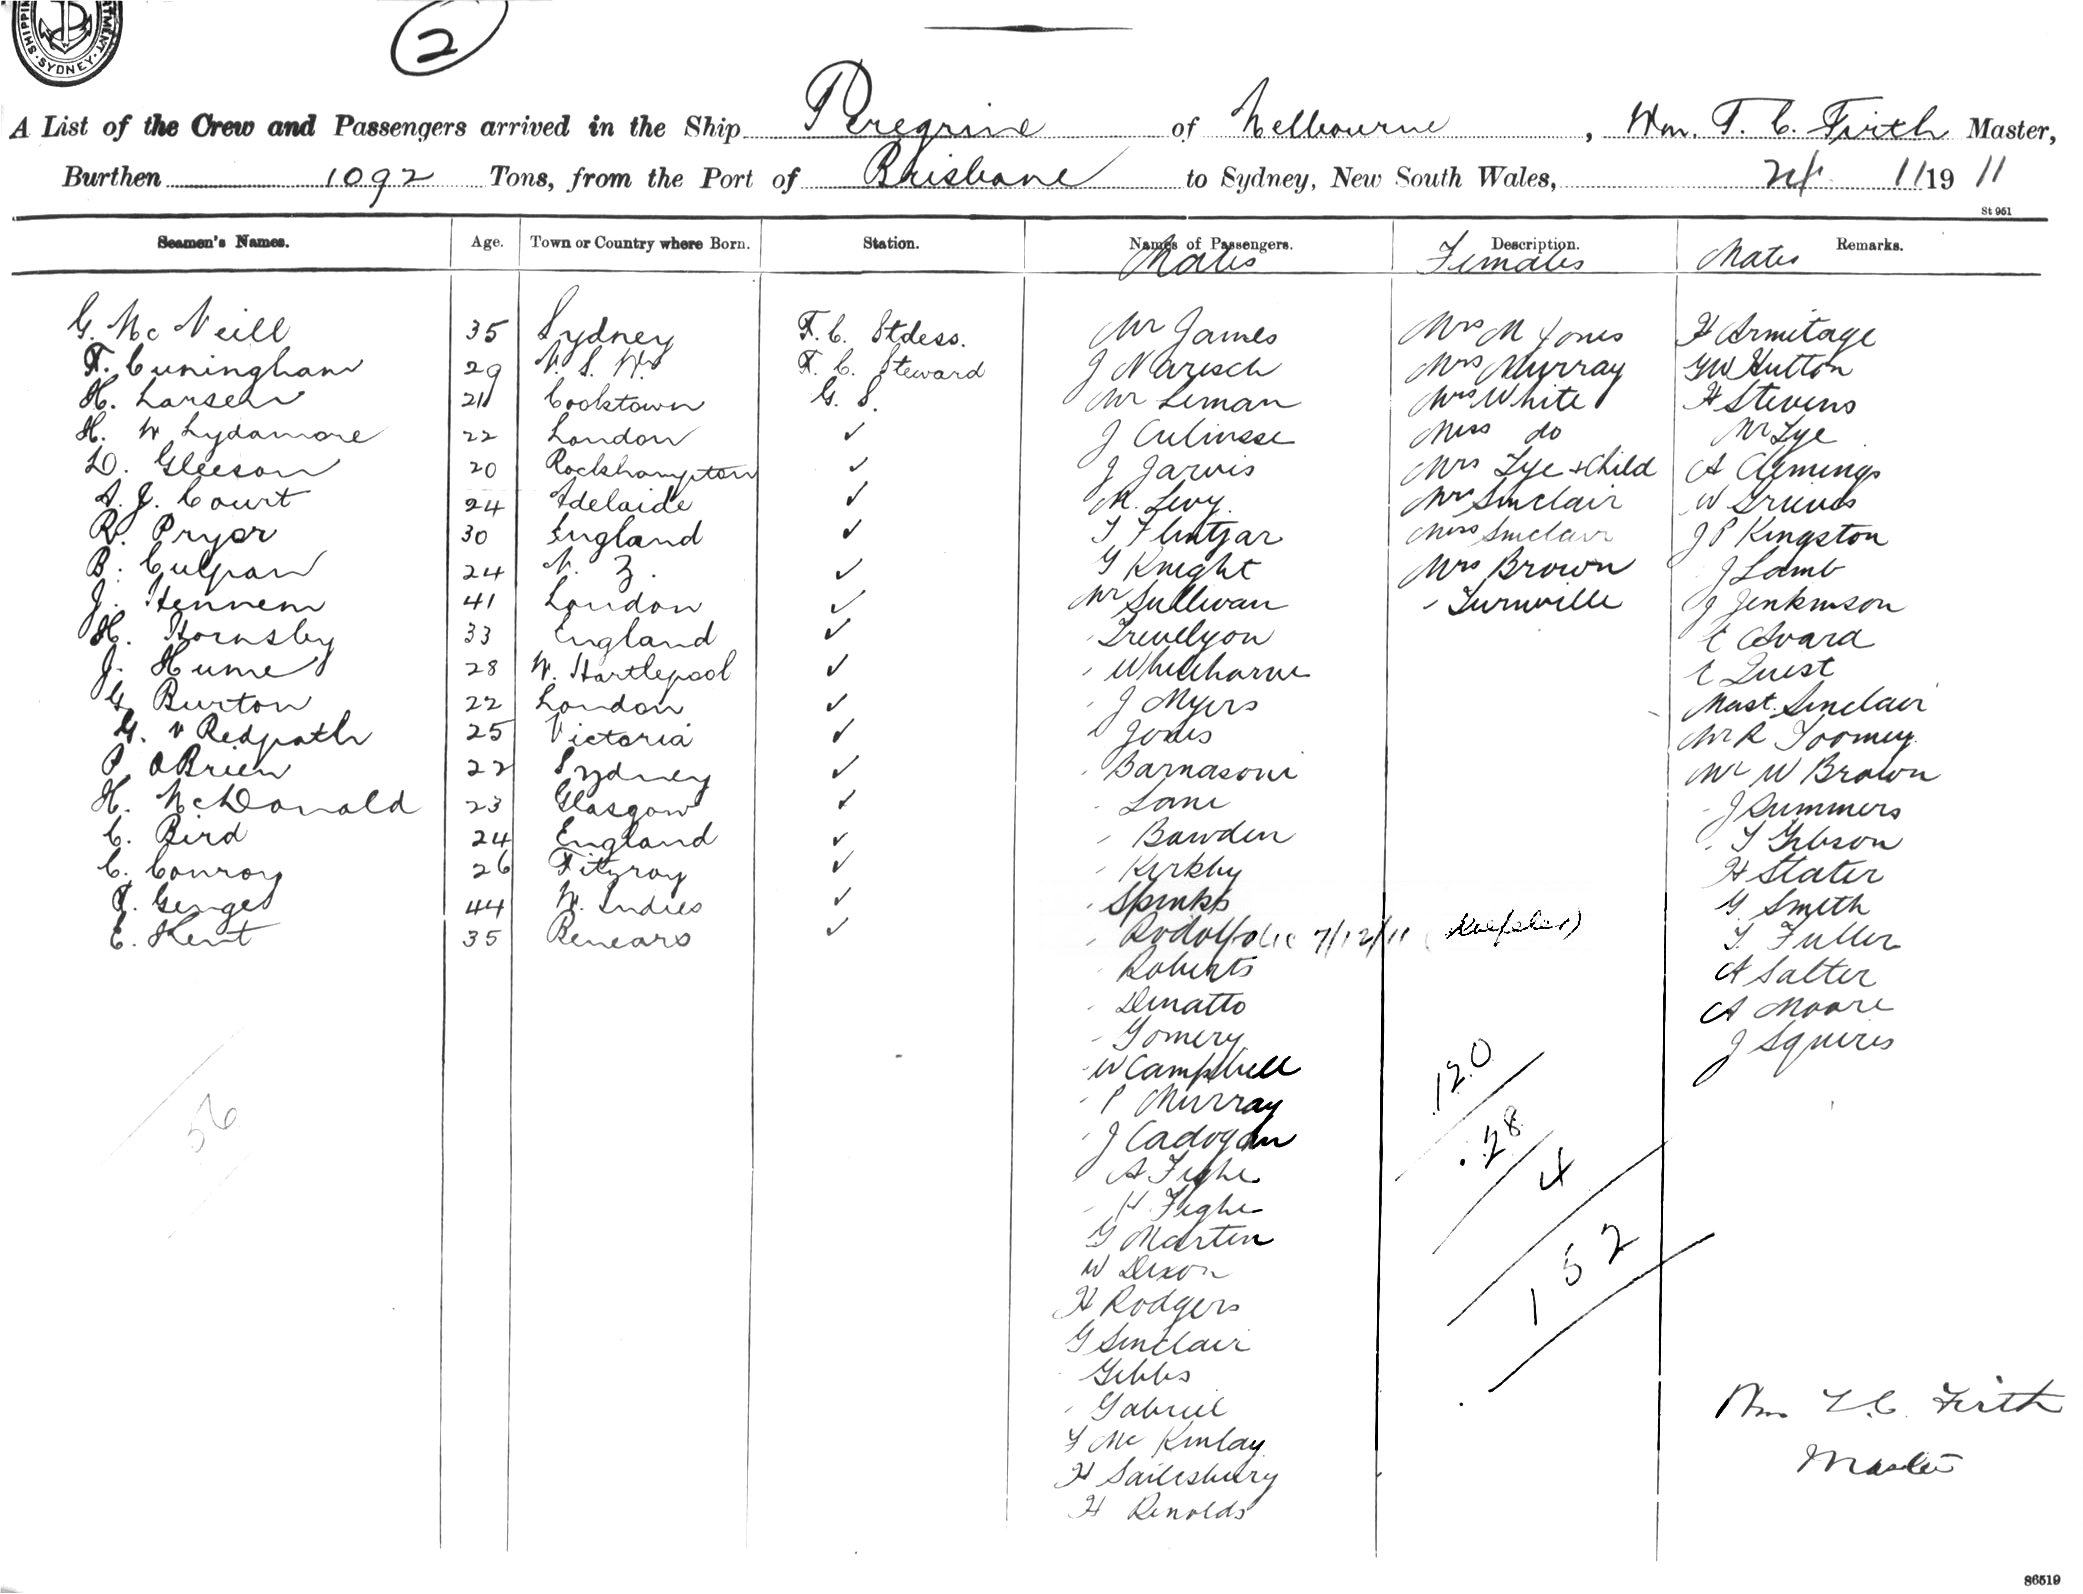 SHIPPING
SYDNEY
2
A List of the Crew and Passengers arrived in the Ship Peregrine of Melbourne, Wm. T. C. Firth Master,
Burthen 1092 Tons, from the Port of Brisbane to Sydney, New South Wales, 24 11/1911
St 951
Seamen's Names. Age. Town or Country where Born. Station. Names of Passengers. Description. Remarks.
Males Females Males
G. McNeill 35 Sydney F. C. Stdess. Mr James Mrs M Jones H Armitage
F. Cuningham 29 N. S. W. F. C. Steward J Narisch Mrs Murray GW Hutton
H. Larsen 21 Cooktown G. S. Mr Leman Mrs White H Stevens
H. W Lydamore 22 London ✓ J Culinsse Miss do Mr Lye
D. Gleeson 20 Rockhampton ✓ J Jarvis Mrs Lye + Child A Clemings
A. J. Court 24 Adelaide ✓ M. Levy. Mrs Sinclair W
R. Pryor 30 England ✓ T Flintjar Miss Sinclair J P Kingston
B. Culpan 24 N. Z. ✓ G Knight Mrs Brown J Lamb
J. Hennem 41 London ✓ Mr Sullivan - Turnville J Jenkinson
H. Hornsby 33 England ✓ Trevelyon E Avard
J. Hume 28 W. Hartlepool ✓ Whileharne E Quist
G. Burton 22 London ✓ J Myers Mast. Sinclair
G. V Redpath 25 Victoria ✓ Jones Mr R Toomey
P. OBrien 22 Sydney ✓ Barnasoni Mr W Brown
H. McDonald 23 Glasgow ✓ Lane J Summers
C. Bird 24 England ✓ Bawden T Gibson
C. Conroy 26 Fitzroy ✓ Kirkby H Slater
T. Genge 44 W. Indies ✓ Spinks G. Smith
E. Kent 35 Benears ✓ 7/12/11 T. Fuller
Roberts A Salter
Dinatto A Moore
Gomery J Squires
W Campbell
P Murray
J Cadogan
A Fighe
H. Fighe
G Martin
W Dixon
H Rodgers
G Sinclair
Gibbs
Gabriel
F Mc Kinlay
H Sailesbury
H Renolds
56
120
28
4
152
Wm T. C. Firth
Master
86519